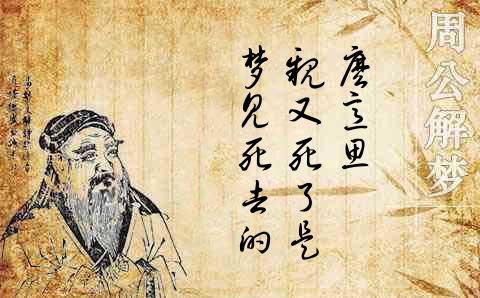 周公解梦
梦见死去的
親又死了是
麽意思